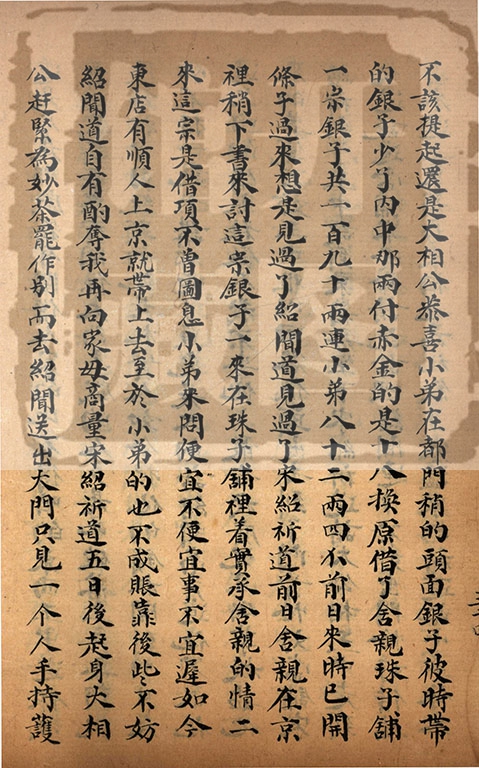 不該提起還是大相公恭喜小弟在都門稍的頭面銀子彼時帶
的銀子少了内中那兩付赤金的是十八換原借了舍親珠子舖
一宗銀子共一百九十兩連小弟八十二兩四不前日來時已開
條子過來想是見過了紹聞道見過了宋紹祈道前日舍親在京
裡稍下書來討這宗銀子一來在珠子鋪裡着實承舍親的情二
來這宗是借項不曾圖息小弟來問便宜不便宜事不宜遲如今
東店有順人上京就帶上去至於小弟的也不成賬靠後些不妨
紹聞道自有酌奪我再向家母商量宋紹祈道五日後起身大相
公赶緊為妙茶罷作别而去紹聞送出大門只見一个人手持護